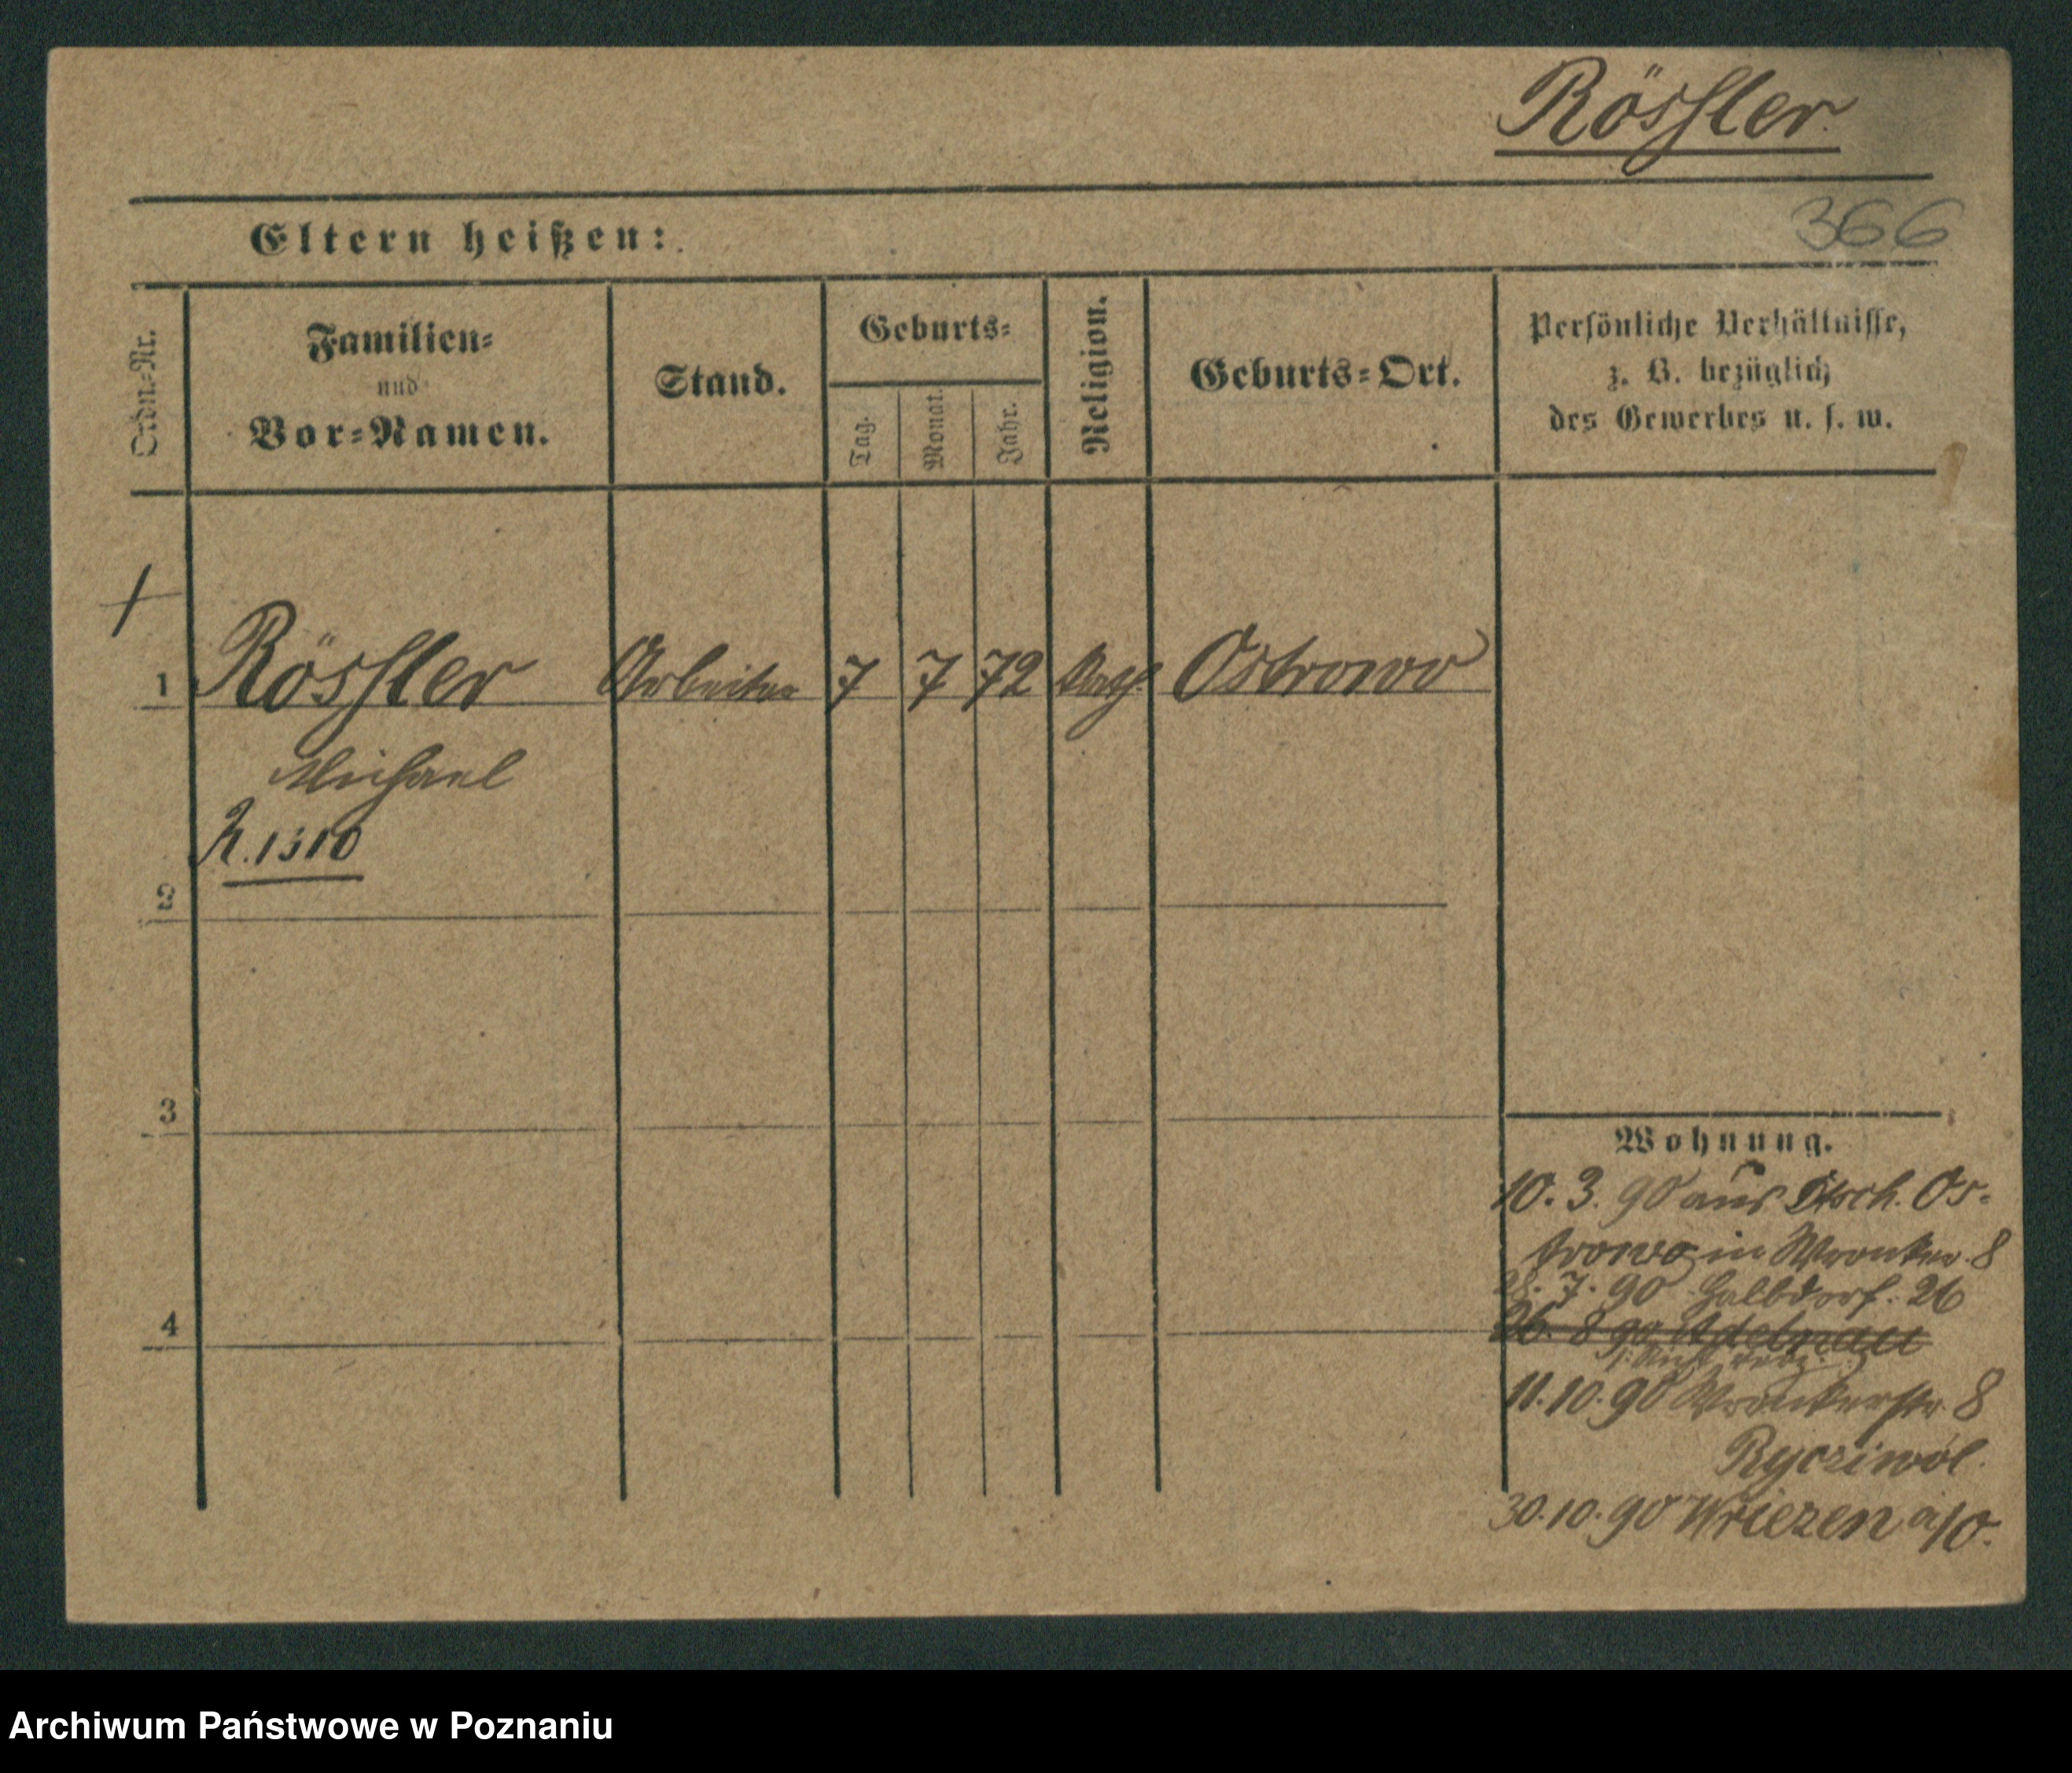 Rössler.
366
Eltern heißen:
Ordn.-Nr.
Familien-
und
Vor-Namen.
Stand.
Geburts-
Tag.
Monat.
Jahr.
Religion.
Geburts-Ort.
Persönliche Verhältnisse,
z. B. bezüglich
des Gewerbes u. s. w.
1 Rössler Arbeiter 7 7 72 Kath. Ostrowo
Michael
K. 1310
2
3
4
Wohnung.
10. 3. 90 aus Dtsch. Os-
trowo in Wronker. 8
28. 7. 90 Halbdorf. 26
26. 8 90 Adelnau
11. 10. 90 Wronkerstr. 8
Rycziwol.
30. 10. 90 Wriezen a/O.
Archiwum Państwowe w Poznaniu